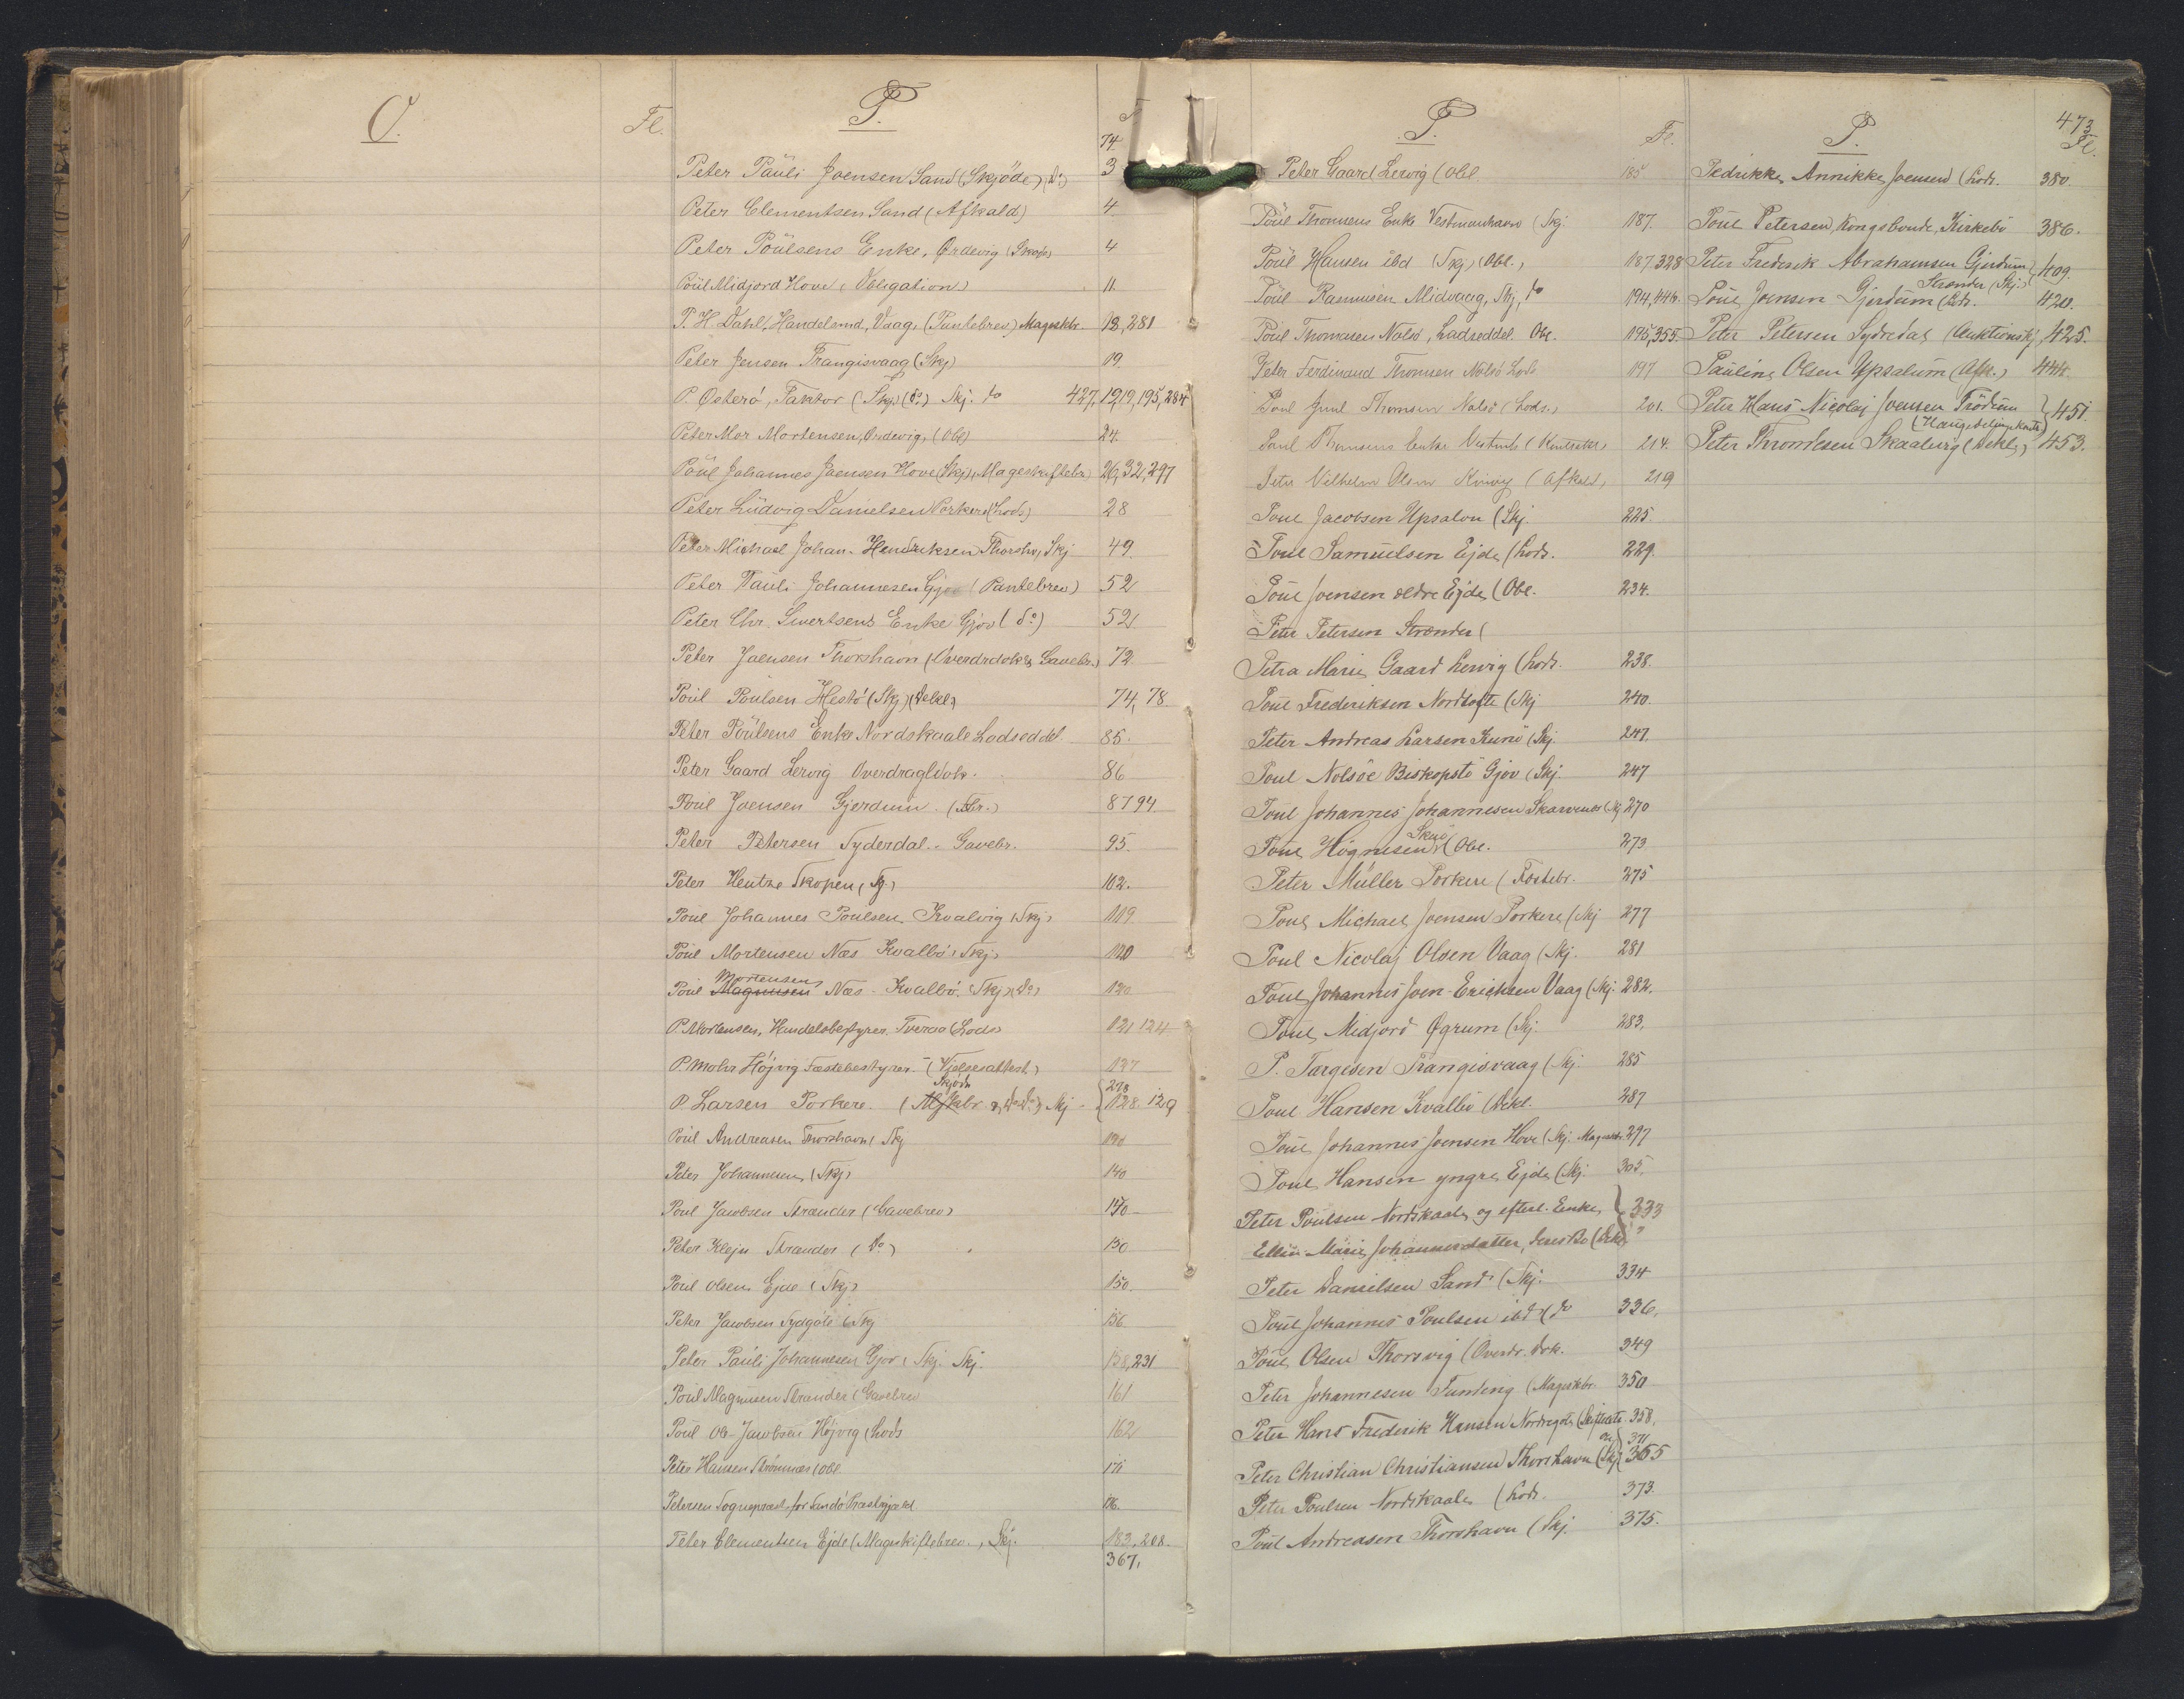 O.
Fl.
P.
74.
Peter Páuli Joensen Sand (Skjöde) (do) 3
Peter Clementsen Sand (Afkald) 4.
Peter Poülsens Enke, Ördevig (Skøde) 4
Poül Midjord Hove (Obligation) 11.
P. H. Dahl, Handelsmd, Vaag, (Pantebrev) Mageskbr. 18, 281
Peter Jensen Trangisvaag (Skj) 19.
P. Österö, Faktor (Skj.) (do.) Skj. do 427, 19, 19, 195, 284
Peter Mor. Mortensen, Ördevig, (Obl) 24.
Poül Johannes Joensen Hove (Skj), Mageskiftebr) 26, 32, 297
Peter Lüdvig Danielsen Porkere (Lods) 28
Peter Michael Johan. Hendriksen Thorshv, Skj 49.
Peter Paüli Johannesen Gjov (Pantebrev) 52
Peter Chr. Sivertsens Enke Gjov (do) 52
Peter Joensen Thorshavn (Overdrdok & Gavebr.) 72.
Poül Poulsen Hestö (Skj) (Dekl) 74, 78
Peter Poülsens Enke Nordskaale Lodseddel 85.
Peter Gaard Lervig Overdragldok. 86
Poül Joensen Gjerdum. 87 94.
Peter Petersen Syderdal. Gavebr. 95.
Peter Hentze Skopen (Skj.) 102.
Poul Johannes Poulsen Kvalvig (Skj) 119
Poul Mortensen Næs Kvalbö (Skj) 120
Mortensen
Poul Magnusen Næs - Kvalbö. (Skj) (do) 120
P. Mortensen, Handelsbestyrer Tveraa (Lods) 121 124
P. Mohr Höjvig Fæstebestyrer. (Vielsesattest.) 127
Skjöde 278
P. Larsen Porkere. 128. 129
Poul Andreasen Thorshavn (Skj
Peter Johannesen (Skj) 140
Poul Jacobsen Strænder (Gavebrev) 140
Peter Klejn Strænder (do) 150
Poul Olsen Ejde (Skj) 150.
Peter Jacobsen Sydgöte (Skj 156
Peter Páuli Johannesen Gjov (Skj. Skj. 158, 231
Poül Magnusen Strænder (Gavebrev 161
Poül Ob. Jacobsen Höjvig (Lods 162
Peter Hansen Strömnæs (Obl. 171
Petersen Sognepræst for Sandö Præstegjæld 176.
Peter Clementsen Ejde (Mageskiftebrev., Skj. 183, 208.
367,
P.
Fl.
Peter Gaard Lervig (Obl 185
Poül Thomsens Enke Vestmanhavn (Skj. 187.
Poül Hansen ibd (Skj) (Obl.) 187. 328
Poül Rasmusen Midvaag, Skj, do 194, 446.
Poül Thomasen Nolsö, Ladseddel. Obl. 195, 355.
Peter Ferdinand Thomsen Nolsö Lods 197
Poul Juul Thomsen Nolsö (Lods.) 201.
Poul Thomsens Enke Vestmh (Kontrakt) 214.
Peter Vilhelm Olsen Kvivig (Afkald) 219
Poul Jacobsen Upsalon (Skj. 225.
Poul Samuelsen Ejde (Lods. 229.
Poul Joensen ældre Ejde (Obl. 234.
Peter Petersen Strænder (
Petra Marie Gaard Lervig (Lods. 238.
Poul Frederiksen Nordtofte (Skj 240.
Peter Andreas Larsen Kunö (Skj. 247.
Poul Nolsöe Biskopstö Gjov (Skj. 247
Poul Johannes Johannesen Skarvenes (Skj 270
Skuö
Poul Högnesen (Obl. 273
Peter Müller Porkere (Fæstebr. 275
Poul Michael Joensen Porkere (Skj 277
Poul Nicolaj Olsen Vaag (Skj. 281
Poul Johannes Joen-Erichsen Vaag (Skj. 282.
Poul Midjord Øgrum (Skj. 283.
P. Targesen Trangisvaag (Skj. 285
Poul Hansen Kvalbö (Dekl. 287
Poul Johannes Joensen Hove (Skj. Mageskbr. 297
Poul Hansen yngre Ejde (Skj. 305.
Peter Poulsen Nordskaale og efterl. Enke } 333
Ellin Marie Johannesdatter, deres Bo (Dekl) "
Peter Danielsen Sand (Skj. 334
Poul Johannes Poulsen ibd (do 336.
Poul Olsen Thorsvig (Overdr. Dok. 349
Peter Johannesen Funding (Mageskbr 350
Peter Hans Frederik Hansen Nordregöte (Skifteatt. 358.
371
Peter Christian Christiansen Thorshavn (Skj 365
Peter Poulsen Nordskaale (Lods. 373.
Poul Andreasen Thorshavn (Skj. 375.
P.
473
Fl.
Pedrikke Annikke Joensen (Lods. 380.
Poul Petersen, Kongsbonde, Kirkebö 386.
Peter Frederik Abrahamsen Gjerdum } 409.
Strænder (Skj.)
Poul Joensen Gjerdum (Lods. 420.
Peter Petersen Sydredal (Auktionskj, 425.
Pauline Olsen Upsalum (Afk.) 444.
Peter Hans Nicolaj Joensen Trödum } 451.
Peter Thomdesen Skaalurg (Dekl.) 453.